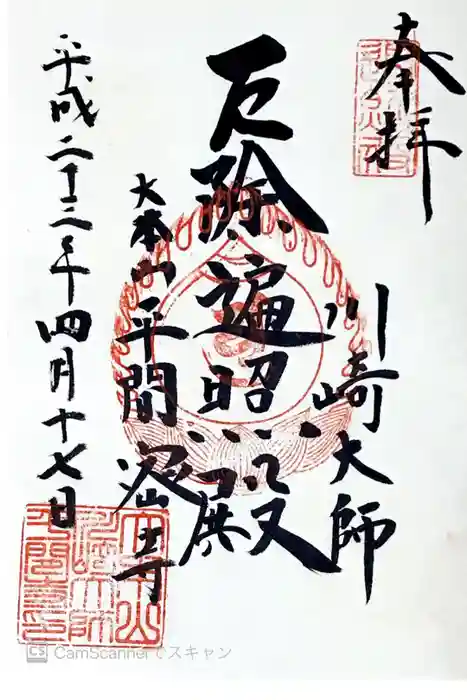 奉拝
川崎大師
厄除遍照殿
大本山平間寺
平成二十三年四月十七日
CamScannerでスキャン